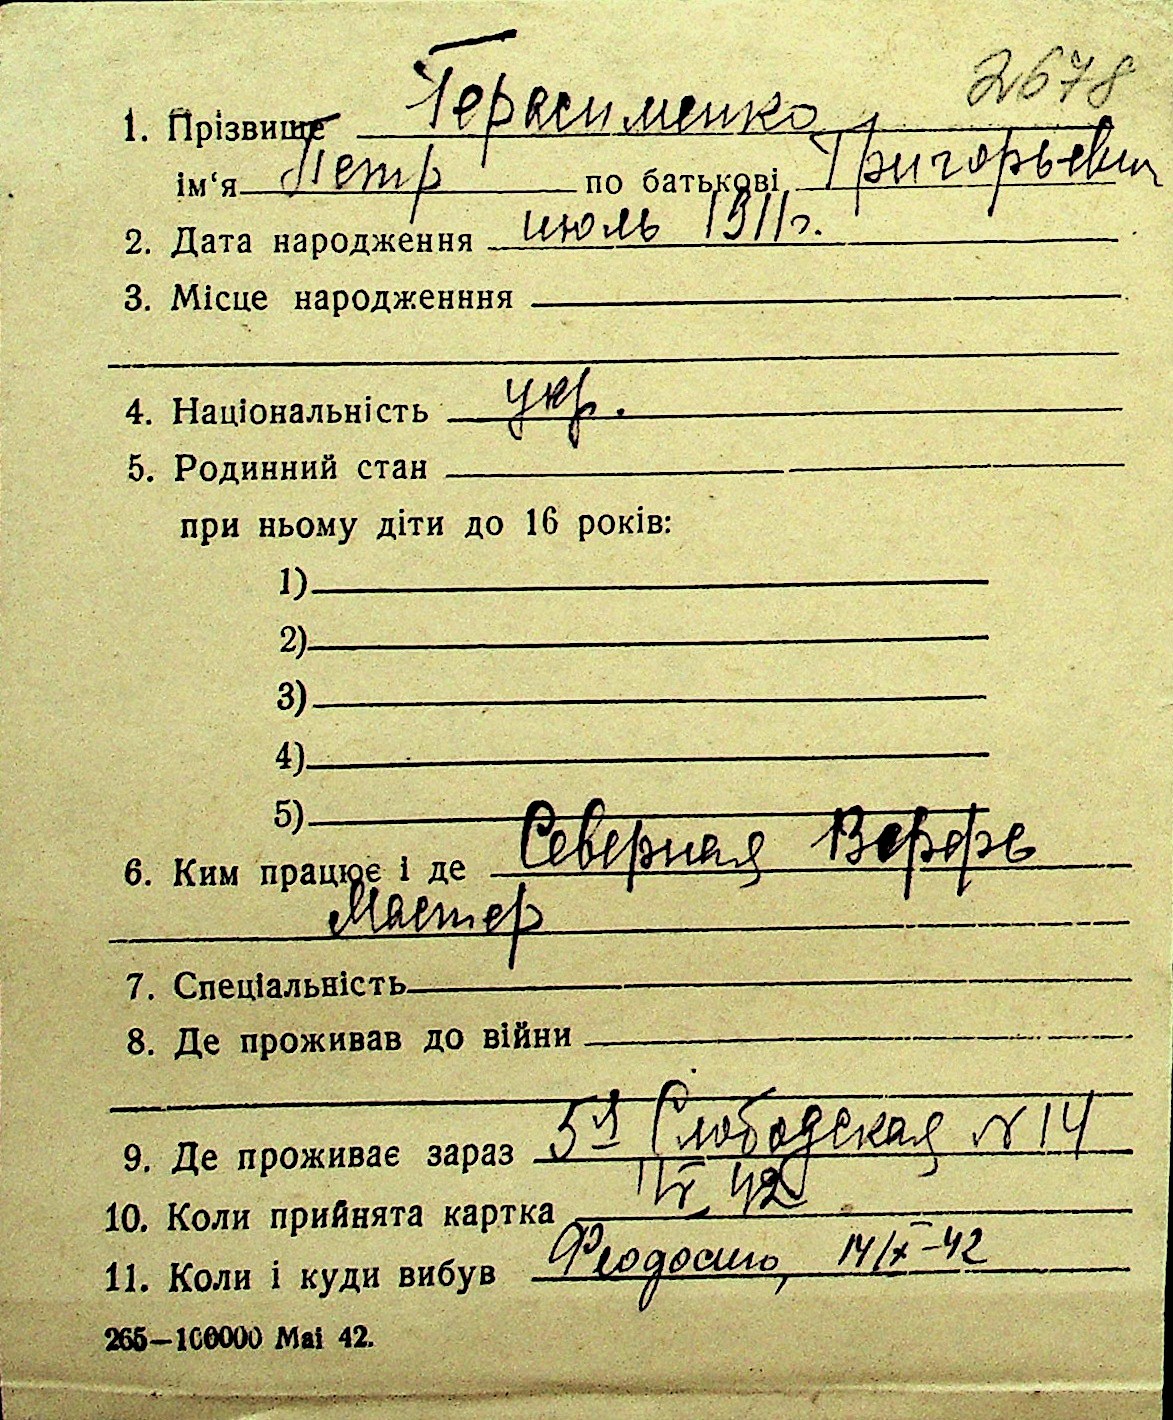 2678
1. Прізвище Герасименко
ім‘я Петр по батькові Григорьевич
2. Дата народження июль 1911г.
3. Місце народженння
4. Національність укр.
5. Родинний стан
при ньому діти до 16 років:
1)
2)
3)
4)
5)
6. Ким працює і де Северная Верфь
Мастер
7. Спеціальність
8. Де проживав до війни
9. Де проживає зараз 5я Слободская N 14
10. Коли прийнята картка 42
11. Коли і куди вибув Феодосию, 14/X-42
265—100000 Mai 42.